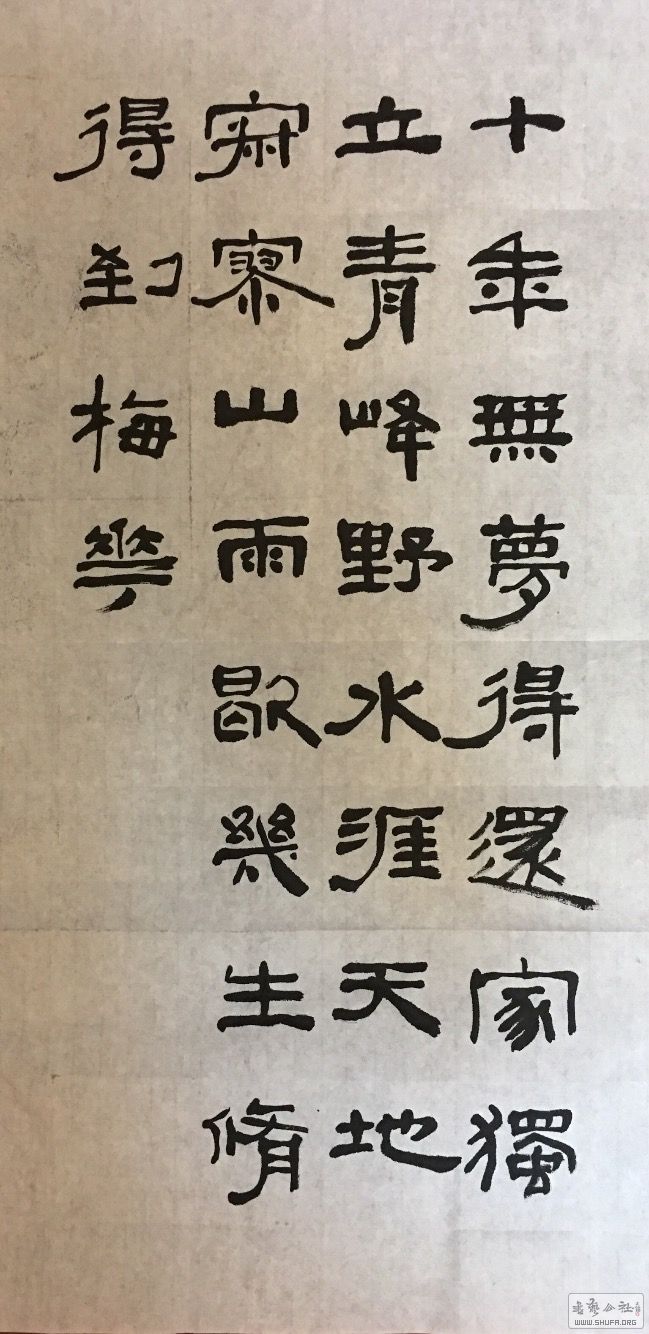 十年無夢得還家獨
立青峰野水涯天地
寂寥山雨歇幾生脩
得到梅華
書藝公社
WWW.SHUFA.ORG